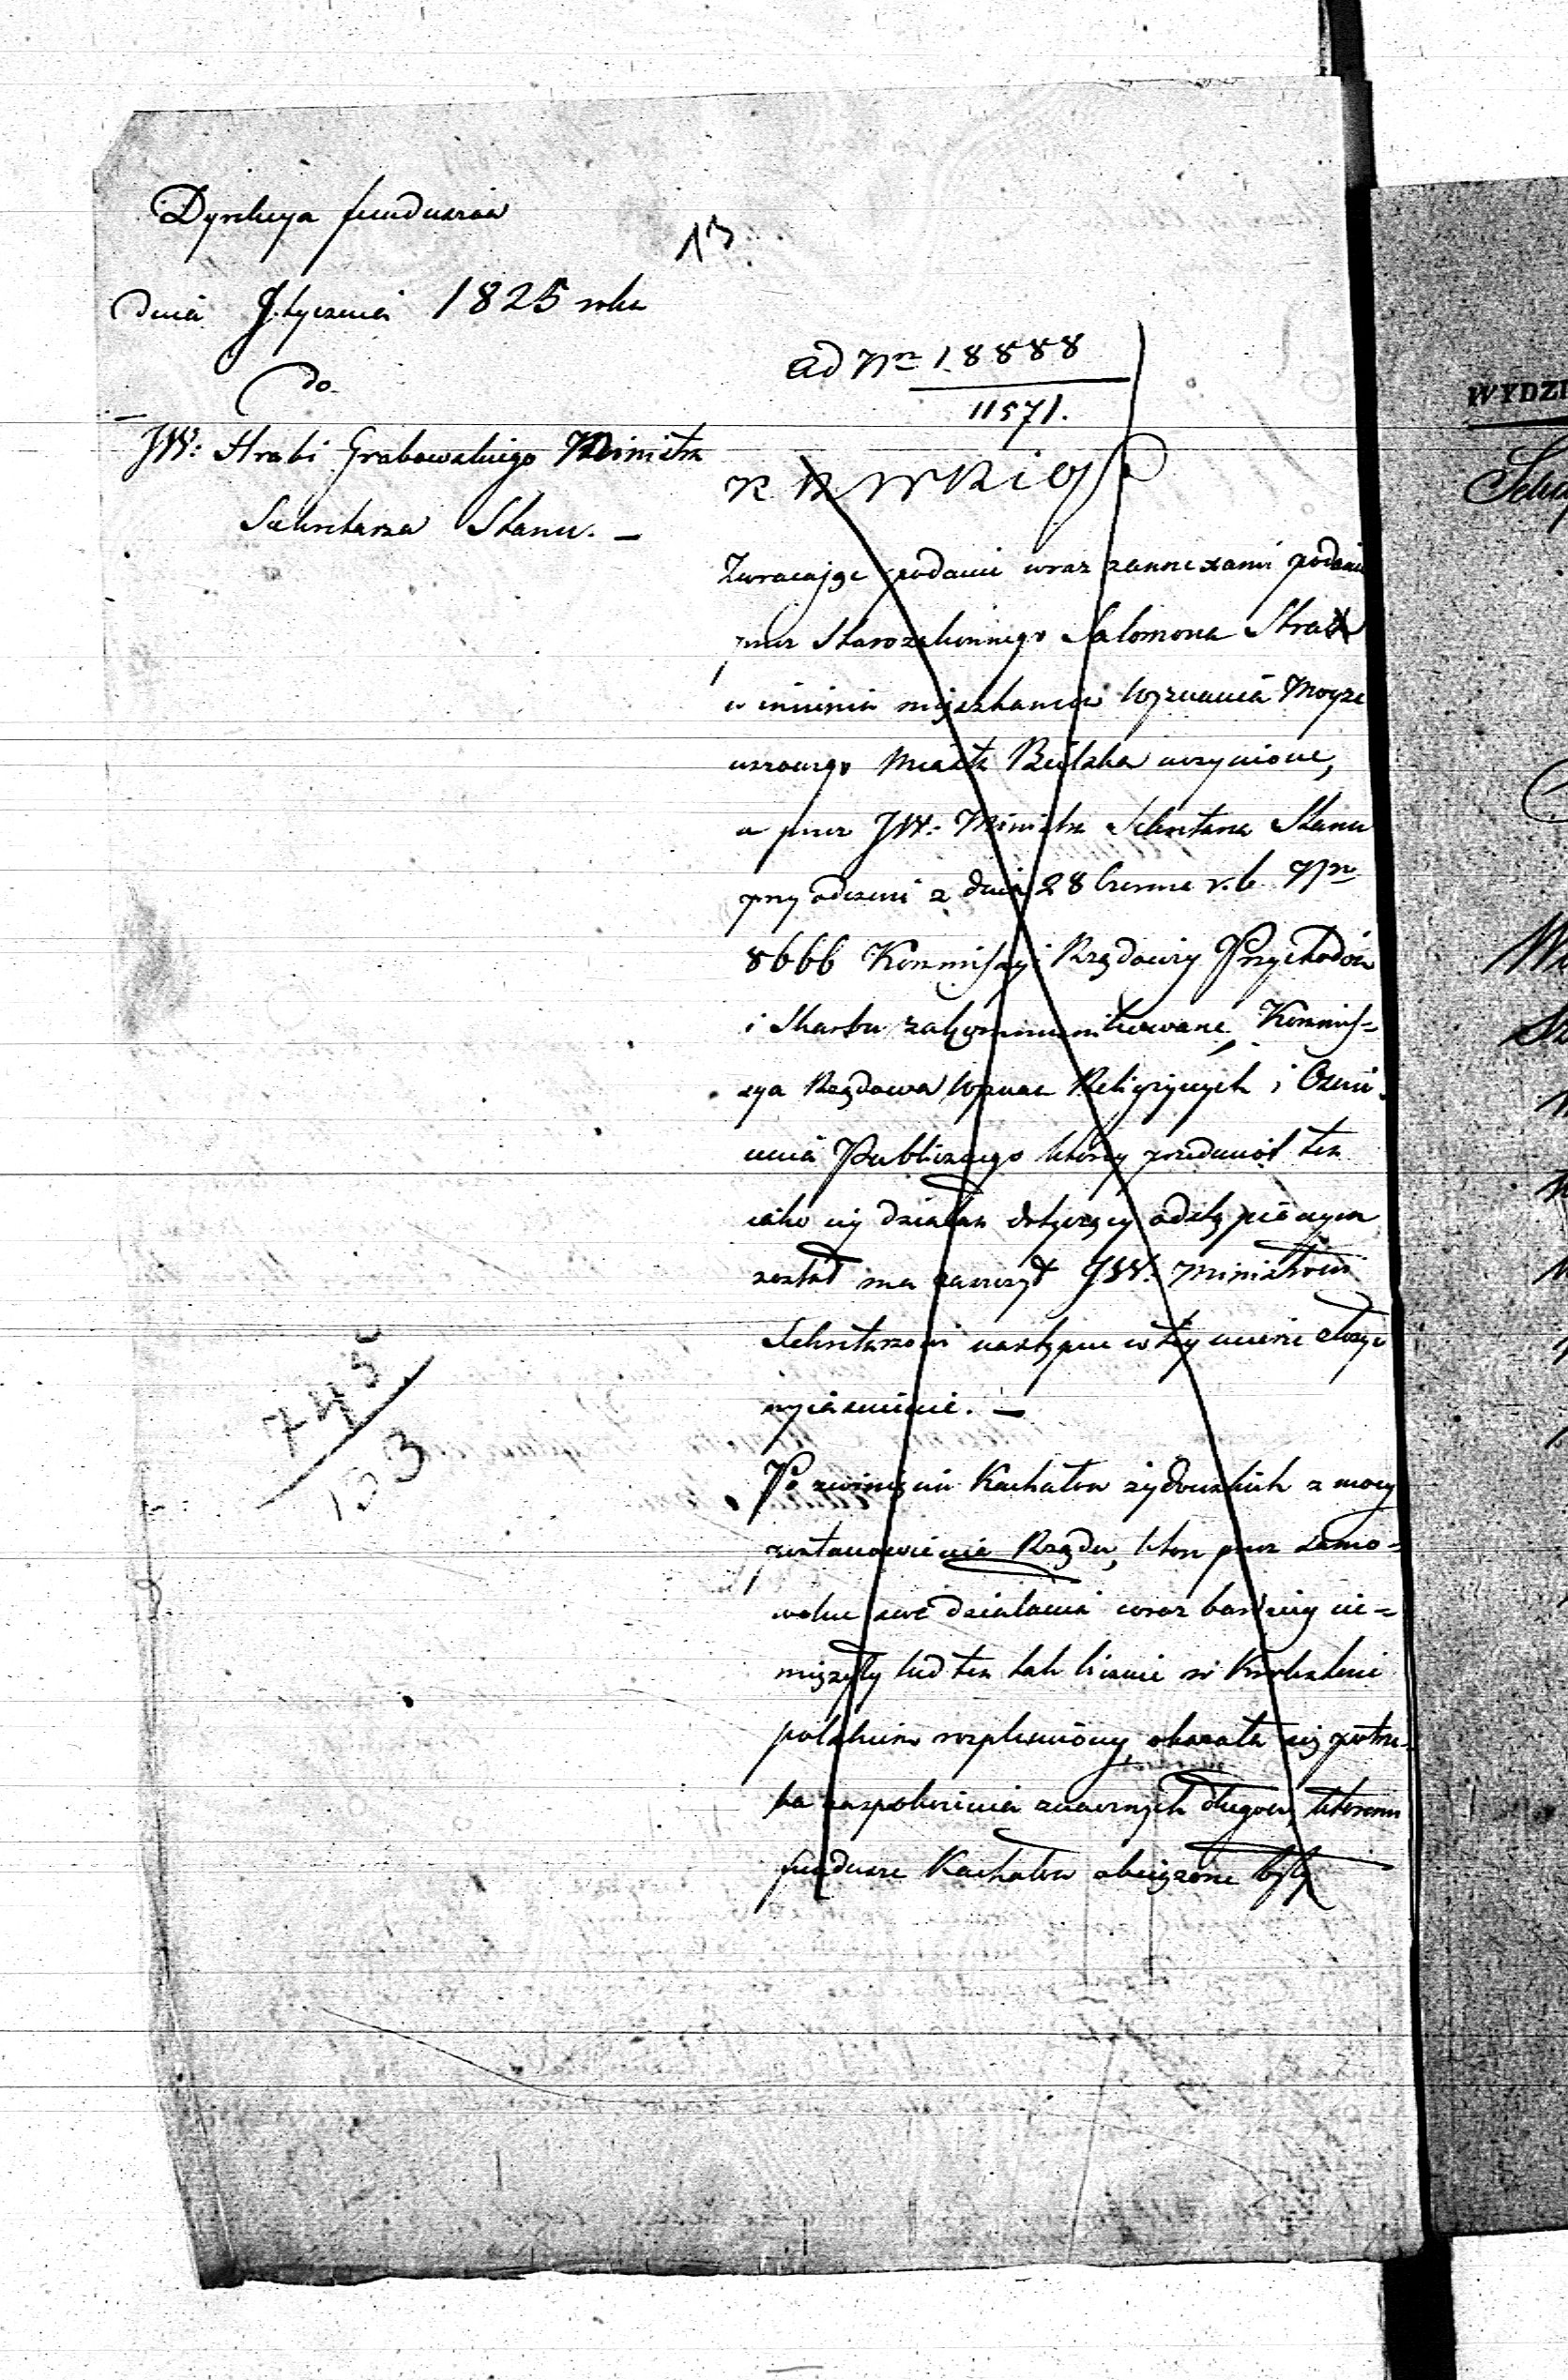 Dyrekcya funduszów
13
dnia Stycznia 1825 roku
do
JW: Hrabi Grabowskiego Ministra
Sekretarza Stanu. —
ad Nrn 18888
11571.
Zwracając podanie wraz zannexami podanie
przez Starozakonnego Salomona
w imieniu mieszkańców Wyznania Moyże
uszowego Miasta Bielska uczynione,
a przez JW: Ministra Sekretarza Stanu
przy odezwie z dnia 28 Czerwca r. b. Nrn
8666 Kommissyi Rządowey Przychodów
i Skarbu zakommunikowane, Kommis=
sya Rządowa Wyznań Religiynych i Oświe
cenia Publicznego którey przedmiot ten
iako iey działań dotyczący odstąpionym
został ma zaszczyt JW. Ministrowi
Sekretarzowi następne w tey mierze złożyć
wyiaśnienie. —
Po zwinięciu Kachałów żydowskich z mocy
postanowienia Rządu, które przez samo=
wolne swe działania coraz bardziey cie=
miężyły lud ten tak licznie w Królestwie
polskiem rozpleniony, okazała się potrze=
ba zaspokoienia znacznych długów, któremi
fundusze Kachałów obciążone były
745
153
WYDZI